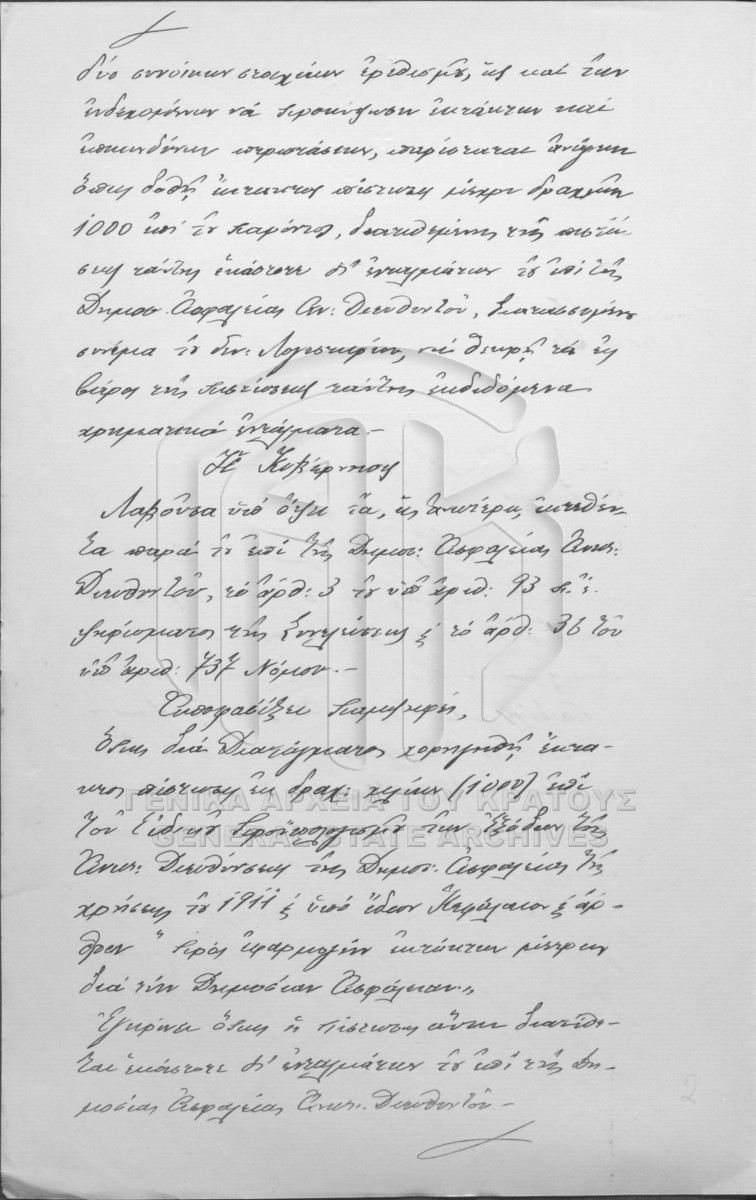 δύο συνοίκων στοιχείων ἐρεθισμοῦ, ὡς καὶ τῶν
ἐνδεχομένων νά προκύψωσιν ἐκτάκτων καί
ἐπικινδύνων περιστάσεων, παρίσταται ἀνάγκη
ὅπως δοθῇ ἔκτακτος πίστωσις μέχρι δραχμῶν
1000 ἐπί τοῦ παρόντος, διατιθεμένης τῆς πιστώ
σεως ταύτης ἑκάστοτε δι' ἐνταλμάτων τοῦ ἐπί τῆς
Δημοσ. Ἀσφαλείας Ἀν: Διευθυντοῦ, διατασσομένου
συνάμα τοῦ Γεν: Λογιστηρίου, νά θεωρῇ τά εἰς
βάρος τῆς πιστώσεως ταύτης ἐκδιδόμενα
χρηματικά ἐντάλματα.–
Ἡ Κυβέρνησις
Λαβοῦσα ὑπό ὄψει τά, ὡς ἀνωτέρω, ἐκτεθέν-
τα παρά τοῦ ἐπί τῆς Δημοσ: Ἀσφαλείας Ἀνωτ:
Διευθυντοῦ, τό ἄρθ: 3 τοῦ ὑπ' ἀριθ: 93 π. ἔ.
ψηφίσματος τῆς Συνελεύσεως ϗ τό ἄρθ: 36 τοῦ
ὑπ' ἀριθ: 737 Νόμου.–
Ἀποφασίζει παμψηφεί,
Ὅπως διά Διατάγματος χορηγηθῇ ἔκτα-
κτος πίστωσις ἐκ δραχ: χιλίων (1000) ἐπί
τοῦ Εἰδικοῦ Προϋπολογισμοῦ τῶν Ἐξόδων τῆς
Ἀνωτ: Διευθύνσεως τῆς Δημοσ: Ἀσφαλείας τῆς
χρήσεως τοῦ 1911 ϗ ὑπό ἴδιον Κεφάλαιον ϗ ἄρ-
θρον " πρός ἐφαρμογήν ἐκτάκτων μέτρων
διά τήν Δημοσίαν Ἀσφάλειαν „
Ἐγκρίνει ὅπως ἡ πίστωσις αὕτη διατίθε-
ται ἑκάστοτε δι' ἐνταλμάτων τοῦ ἐπί τῆς Δη-
μοσίας Ἀσφαλείας Ἀνωτ: Διευθυντοῦ.–
2
ΓΕΝΙΚΑ ΑΡΧΕΙΑ ΤΟΥ ΚΡΑΤΟΥΣ
GENERAL STATE ARCHIVES